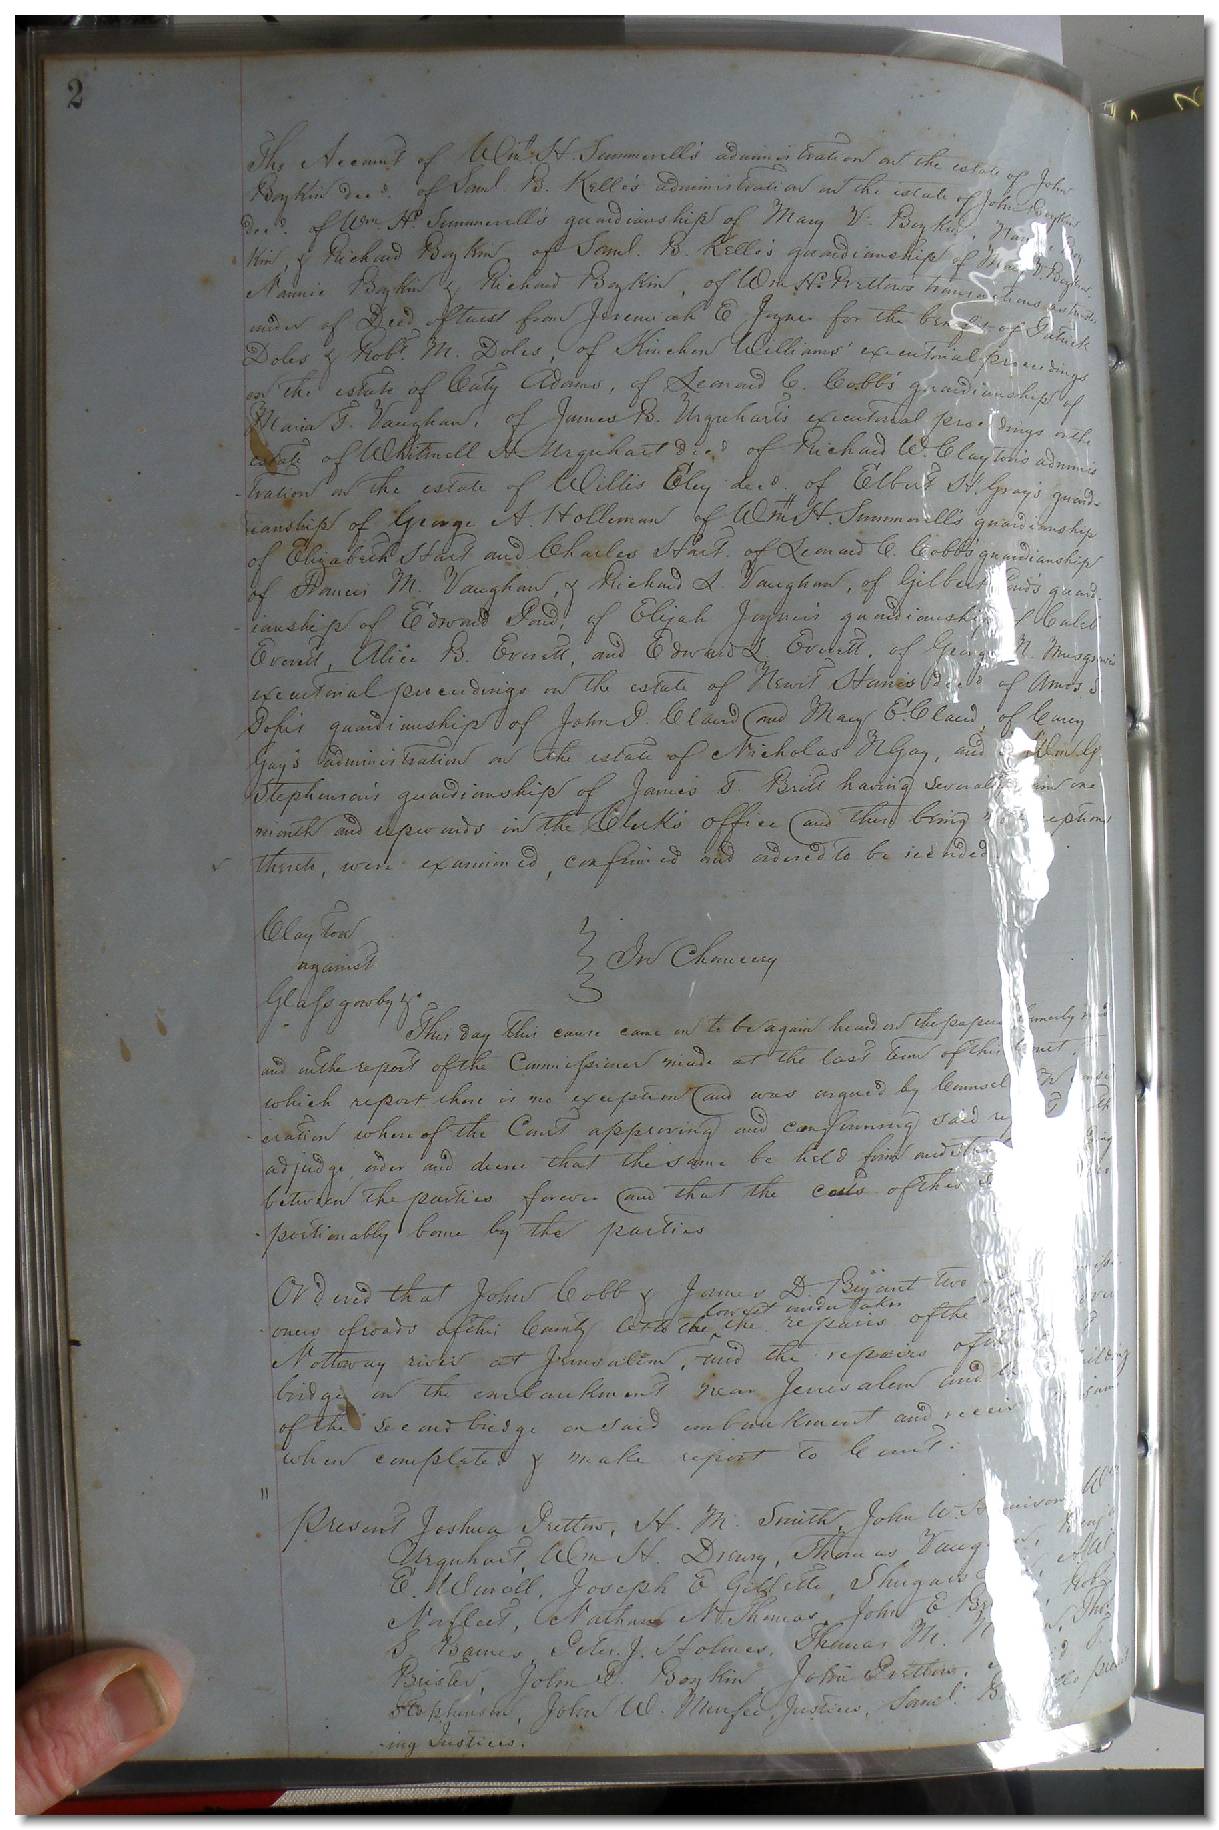 2
The Account of Wm. H. Summerell's administration on the estate of John
Boykin decd. of Saml. B. Kello's administration on the estate of John Boykin
decd. of Wm H. Summerell's guardianship of Mary V. Boykin, Nannie Boy
kin, & Richard Boykin, of Saml. B. Kello's guardianship of Mary V. Boykin,
Nannie Boykin & Richard Boykin, of Wm H. Prettows transactions as trustee
under of Deed of trust from Jeremiah C Joyner for the benefit of Patrick
Doles & Robt. M. Doles, of Kinchen Williams' executorial proceedings
on the estate of Caty Adams, of Leonard C. Cobb's guardianship of
Maria T. Vaughan, of James B. Urquhart's executorial proceedings on the
estate of Whitmell H Urquhart decd of Richard W. Clayton's adminis
-tration on the estate of Willis Eley decd. of Elbert H. Gray's guard-
ianship of George A. Holleman of Wm H. Summerell's guardianship
of Elizabeth Hart and Charles Hart. of Leonard C. Cobb's guardianship
of Francis M. Vaughan, & Richard L. Vaughan, of Gilbert guard-
-ianship of Edward Pond, of Elijah Joyner's guardianship of Caleb
Everett, Alice B. Everett, and Edward L. Everett. of George N. Musgrove's
executorial proceedings on the estate of Newit Harris decd of Amos S
guardianship of John D. Claud and Mary E. Claud, of Carey
Gay's administration on the estate of Nicholas N Gay, and Wm G
Stephenson's guardianship of James T. Britt having severally one
month and upwards in the Clerk's office and there being
thereto, were examined, confirmed and ordered to be recorded
Clayton
against
In Chancery
Glassgowby &c
This day this cause came on to be again heard on the papers formerly
and on the report of the Commissioner made at the last term of this Court,
which report there is no exception and was argued by Counsel
-eration whereof the Court approving and confirming said
adjudge, order and decree that the same be held firm and
between the parties forever and that the costs of this
-portionably borne by the parties
Ordered that John Cobb & James D. Bryant two
-oners of roads of this County let to the lowest undertaker the repairs of the
Nottoway river at Jerusalem, and the repairs of the
bridge on the embankment near Jerusalem and the
of the second bridge on said embankment and
when completed & make report to Court.
" Present Joshua Prettow, H. M. Smith, John W.
Urquhart, Wm H. Drewry, Thomas
E. Worrell, Joseph E Gillette, Shugars
Norfleet, Nathan N. Thomas, John E
S Barnes, Peter J. Holmes, Thomas M.
Bristor, John D. Boykin, John Prettow,
Stephenson, John W. Justices, Saml. B.
-ing Justices.